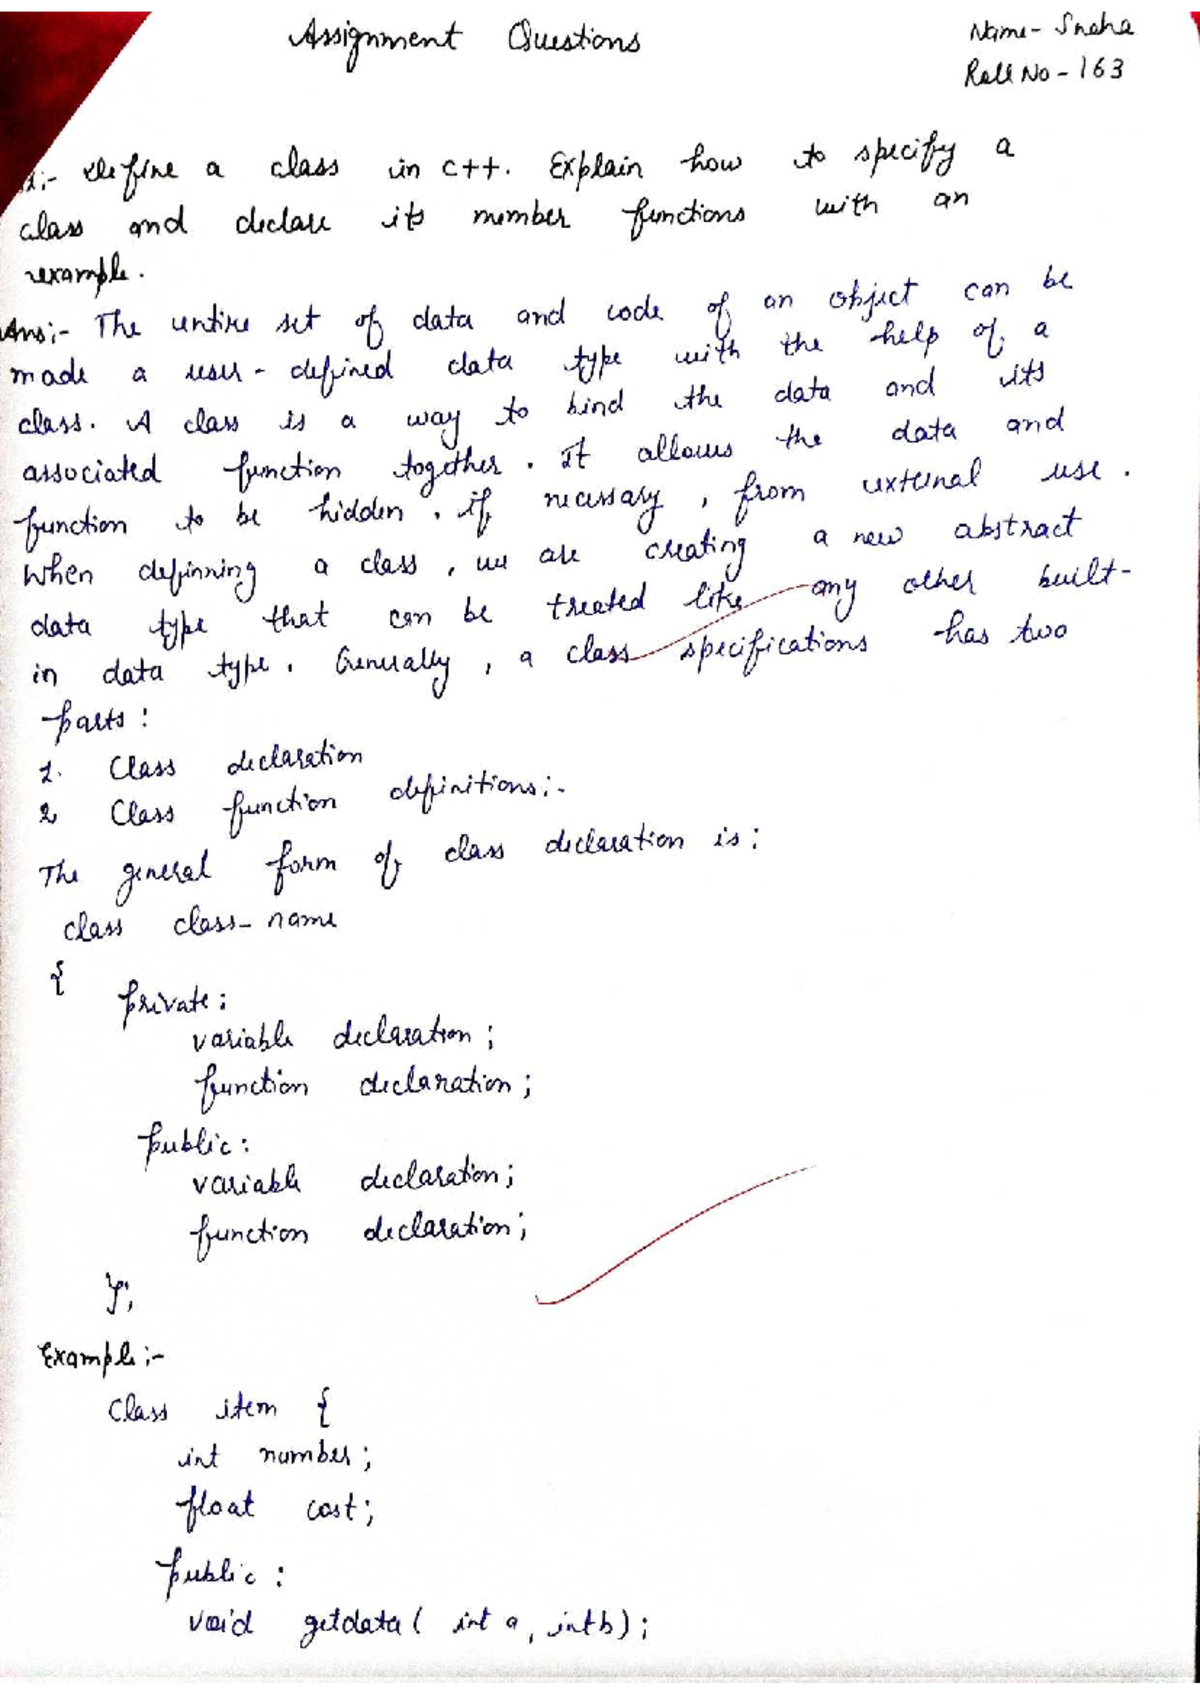 Assignment Questions
Name- Sneha
Roll No - 163
1:- Define a class in c++. Explain how to specify a
class and declare its member functions with an
example.
Ans:- The entire set of data and code of an object can be
made a user-defined data type with the help of a
class. A class is a way to bind the data and its
associated function together. It allows the data and
function to be hidden, if necessary, from external use.
When definning a class, we are creating a new abstract
data type that can be treated like any other built-
in data type. Generally, a class specifications has two
parts:
1. Class declaration
2. Class function definitions:-
The general form of class declaration is:
class class-name
{
private:
variable declaration;
function declaration;
public:
variable declaration;
function declaration;
};
Example:-
Class item {
int number;
float cost;
public:
void getdata( int a, int b);